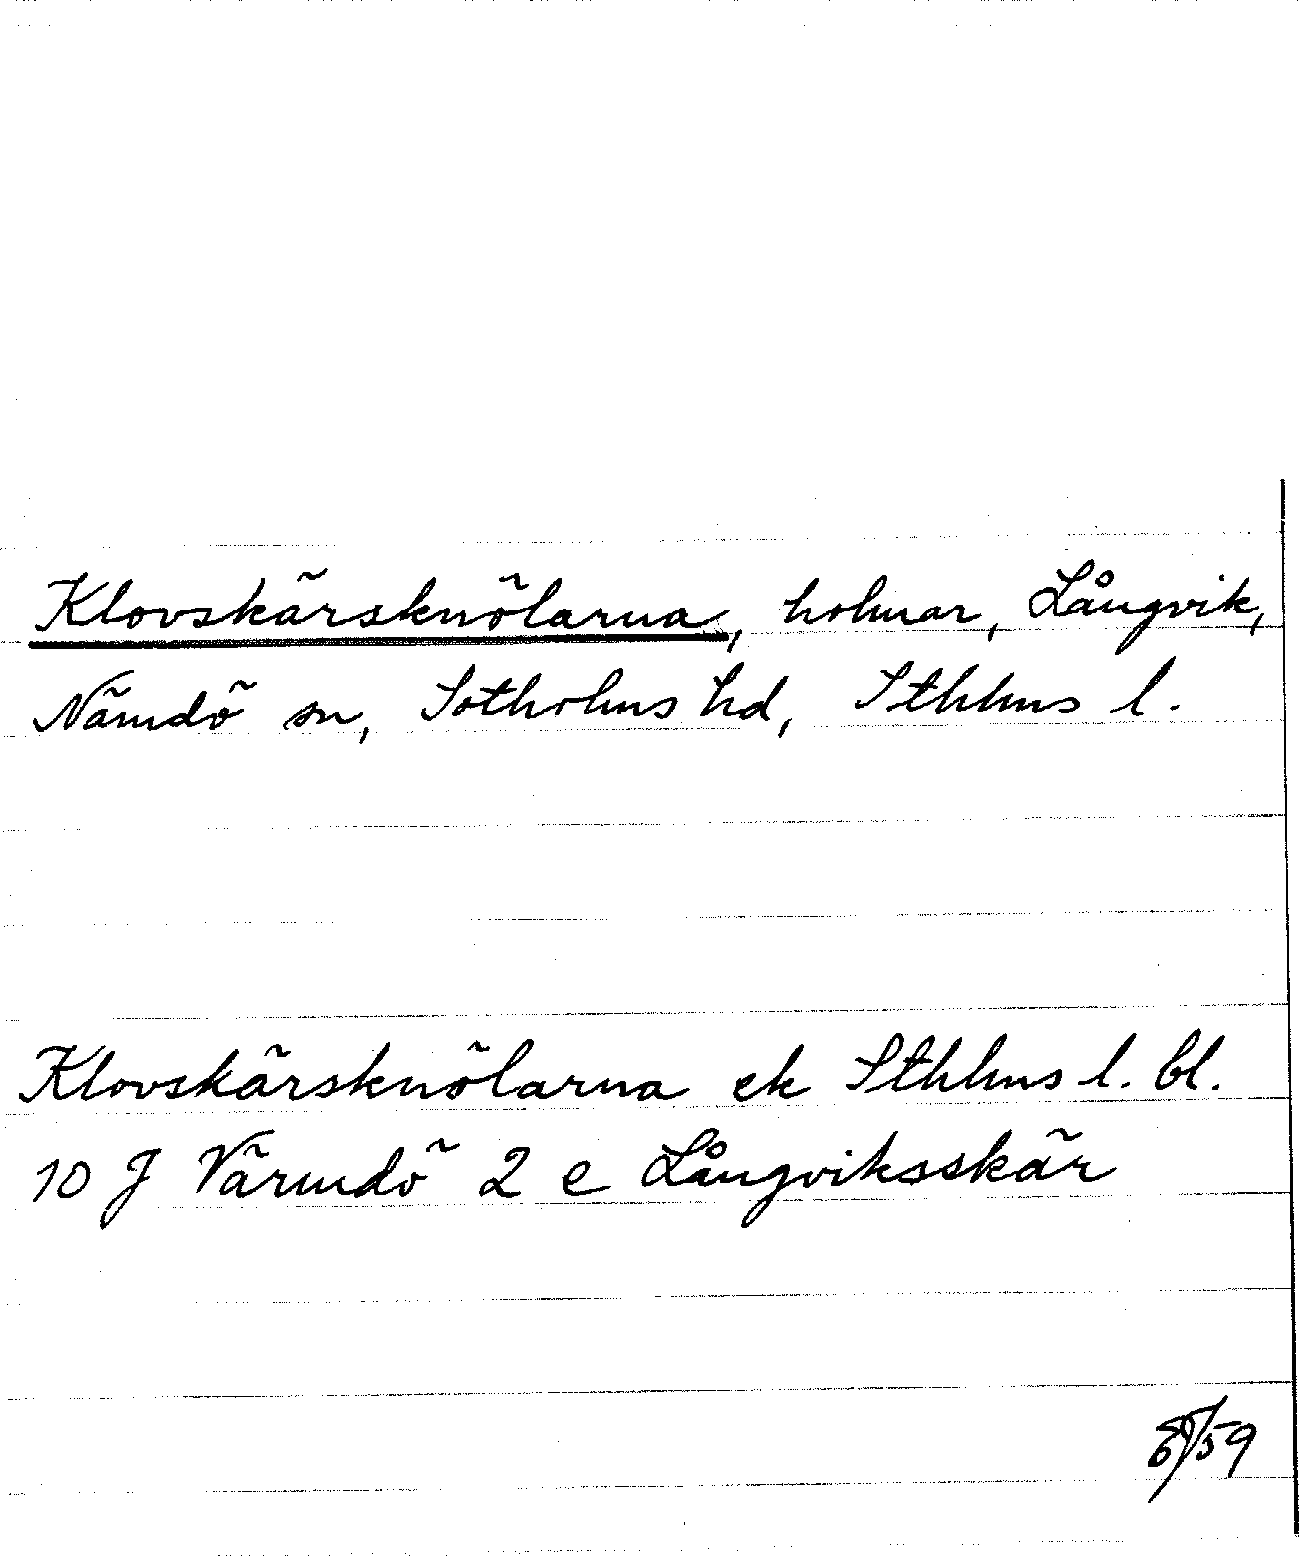 Klovskärsknölarna, holmar, Långvik,
Nämdö sn, Sotholms hd, Sthlms l.
Klovskärsknölarna ek Sthlms l. bl.
10 J Värmdö 2 e Långviksskär
59